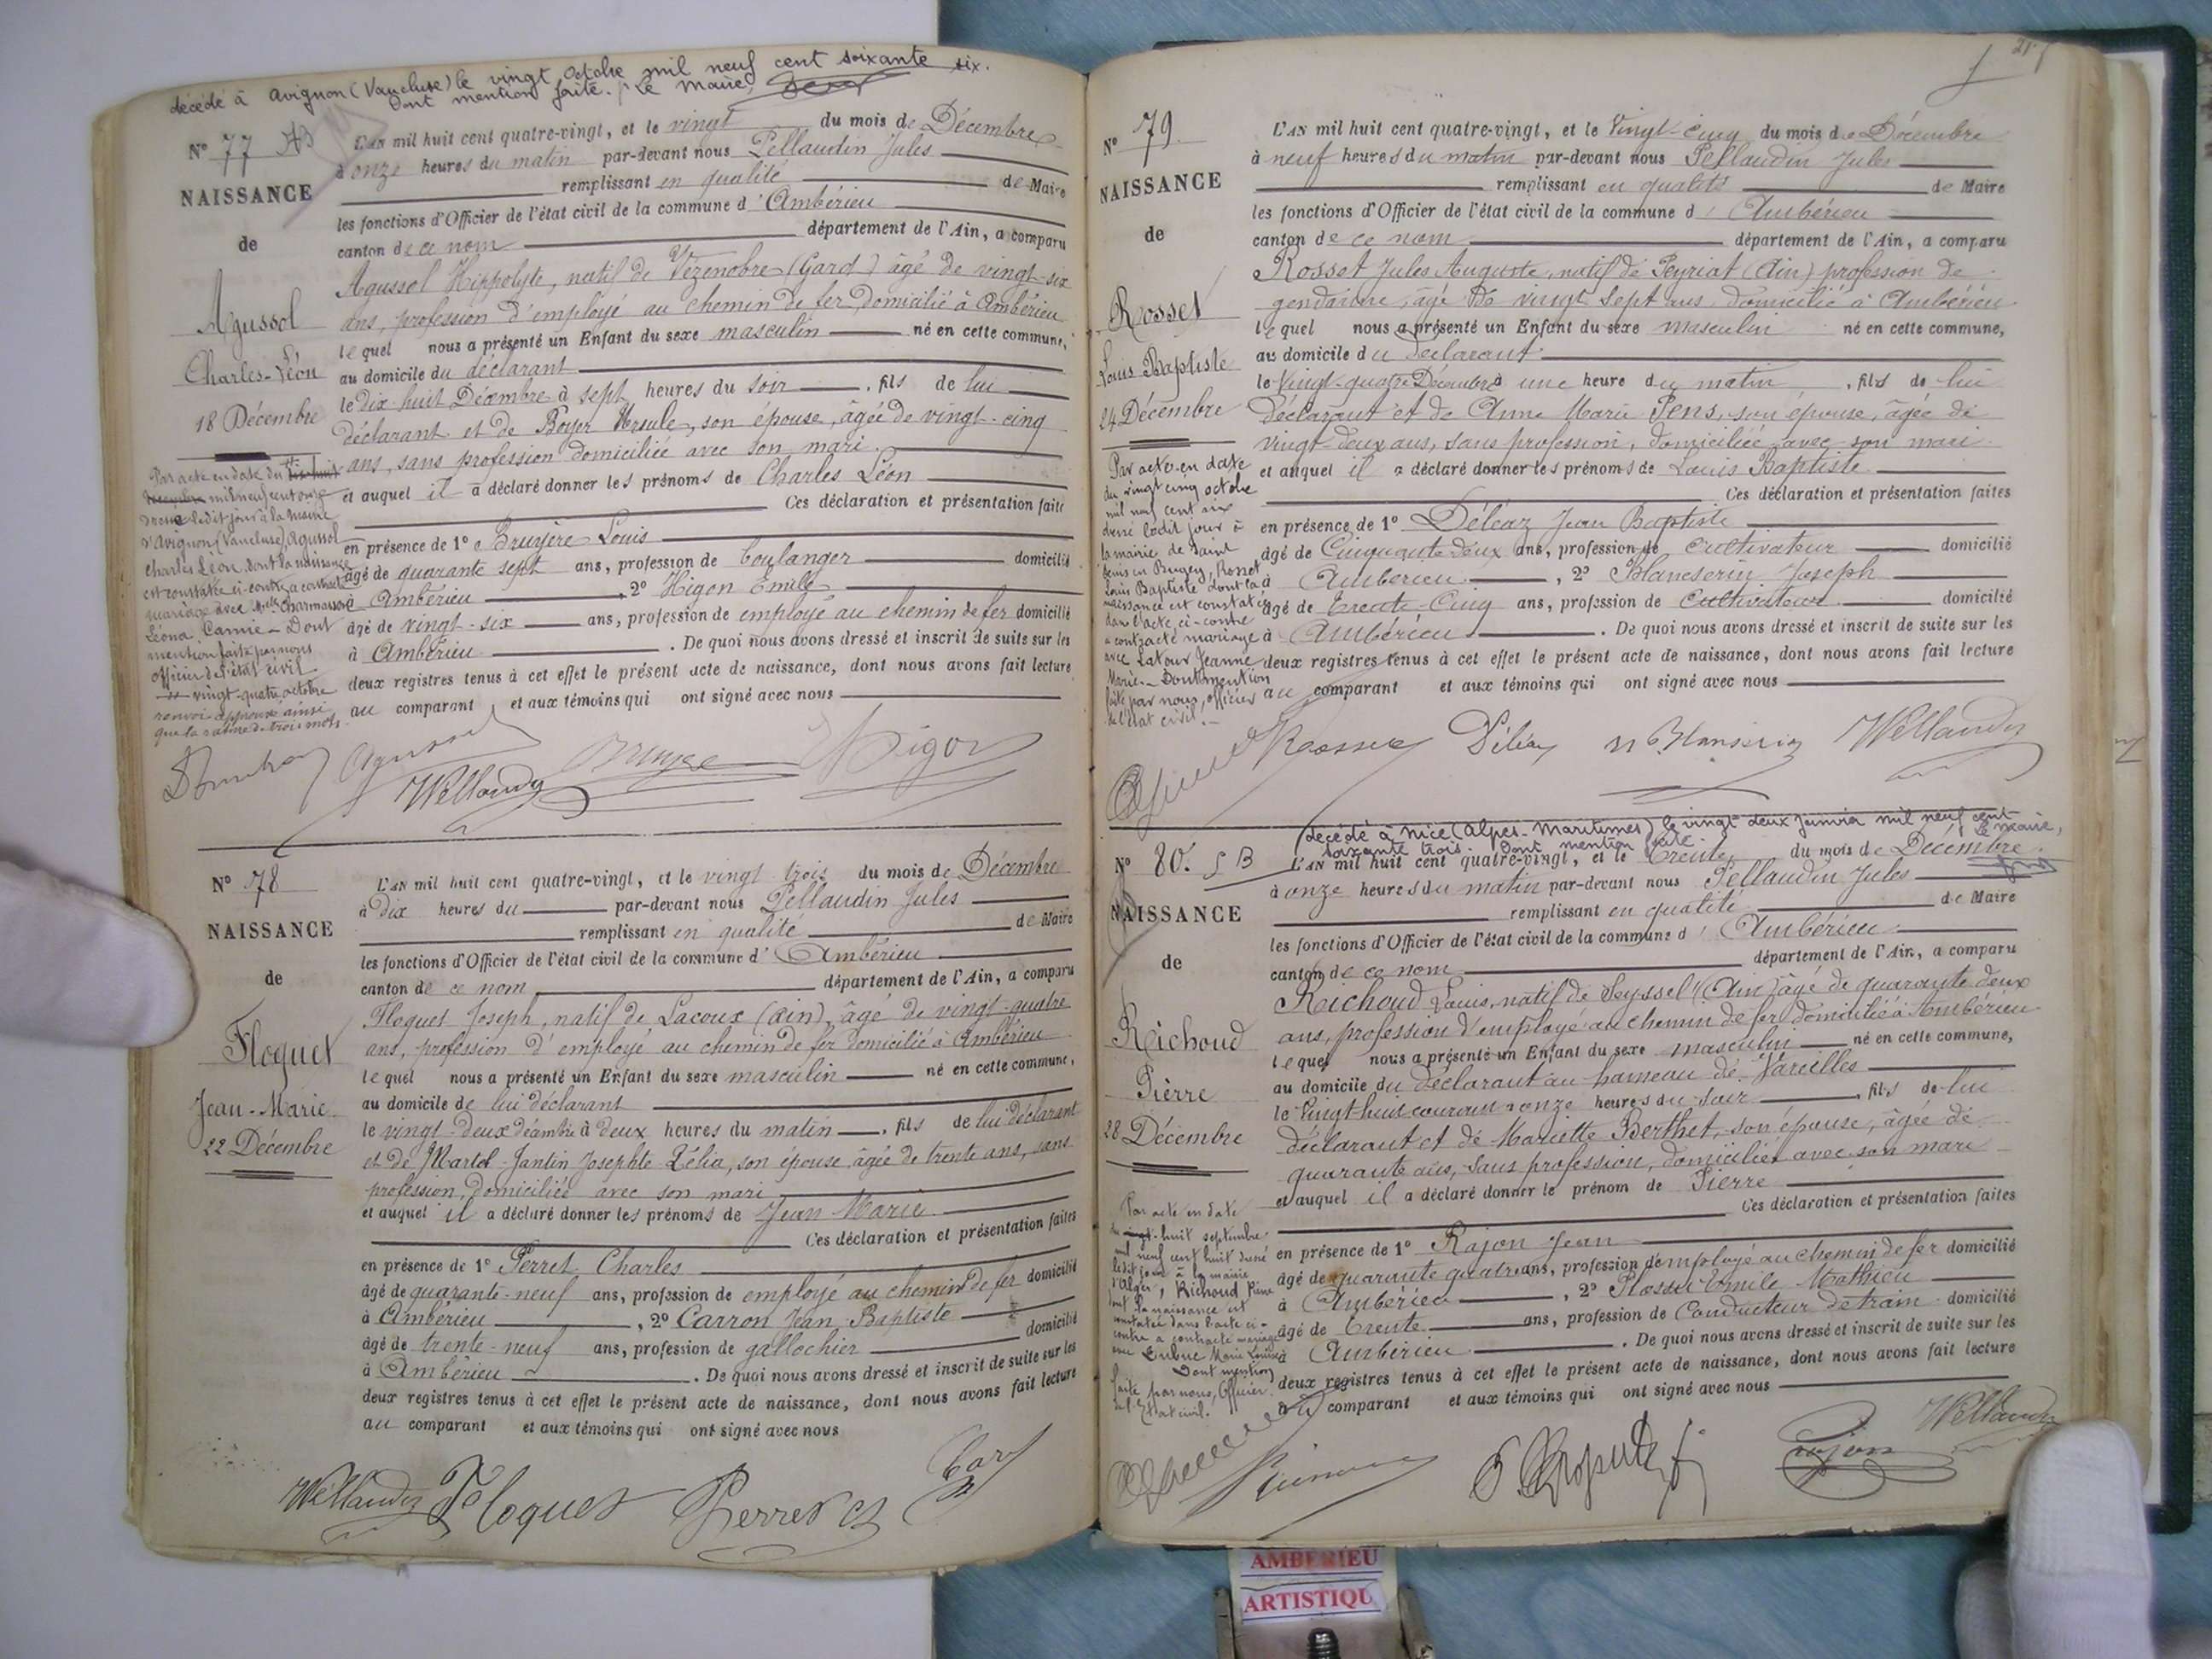 décédé à Avignon (Vaucluse) le vingt octobre mil neuf cent soixante six.
Dont mention faite. Le Maire,
N° 77
NAISSANCE
de
Agussol
Charles-Léon
18 Décembre
L'AN mil huit cent quatre-vingt, et le vingt du mois de Décembre
à onze heures du matin par-devant nous Pellaudin Jules
remplissant en qualité de Maire
les fonctions d'Officier de l'état civil de la commune d'Ambérieu
canton de ce nom département de l'Ain, a comparu
Agussol Hippolyte, natif de Vézenobre (Gard) âgé de vingt-six
ans, profession d'employé au chemin de fer, domicilié à Ambérieu
lequel nous a présenté un Enfant du sexe masculin né en cette commune,
au domicile du déclarant
le dix huit Décembre à sept heures du soir, fils de lui
déclarant et de Boyer Ursule, son épouse, âgée de vingt-cinq
ans, sans profession domiciliée avec son mari.
et auquel il a déclaré donner les prénoms de Charles Léon
Ces déclaration et présentation faite
en présence de 1° Bruyère Louis
âgé de quarante sept ans, profession de boulanger domicilié
à Ambérieu, 2° Higon Emile
âgé de vingt-six ans, profession de employé au chemin de fer domicilié
à Ambérieu. De quoi nous avons dressé et inscrit de suite sur les
deux registres tenus à cet effet le présent acte de naissance, dont nous avons fait lecture
au comparant et aux témoins qui ont signé avec nous
Par acte en date du
mil neuf cent onze
dressé ledit jour à la mairie
d'Avignon (Vaucluse), Agussol
Charles Léon, dont la naissance
est constatée ci-contre a contracté
mariage avec Mlle
Léona Camie - Dont
mention faite par nous
officier de l'état civil
vingt-quatre octobre
renvoi approuvé ainsi
que la rature de trois mots.
Agussol Bruyère Higon
N° 78
NAISSANCE
de
Floquet
Jean-Marie
22 Décembre
L'AN mil huit cent quatre-vingt, et le vingt trois du mois de Décembre
à Dix heures du par-devant nous Pellaudin Jules
remplissant en qualité de Maire
les fonctions d'Officier de l'état civil de la commune d'Ambérieu
canton de ce nom département de l'Ain, a comparu
Floquet Joseph, natif de Lacoux (Ain), âgé de vingt-quatre
ans, profession d'employé au chemin de fer domicilié à Ambérieu
lequel nous a présenté un Enfant du sexe masculin né en cette commune,
au domicile de lui déclarant
le vingt-deux décembre à deux heures du matin, fils de lui déclarant
et de Martel-Jantin Josephte Lélia, son épouse, âgée de trente ans, sans
profession, domiciliée avec son mari
et auquel il a déclaré donner les prénoms de Jean Marie
Ces déclaration et présentation faites
en présence de 1° Perret Charles
âgé de quarante-neuf ans, profession de employé au chemin de fer domicilié
à Ambérieu, 2° Carron Jean Baptiste
âgé de trente-neuf ans, profession de gallochier domicilié
à Ambérieu. De quoi nous avons dressé et inscrit de suite sur les
deux registres tenus à cet effet le présent acte de naissance, dont nous avons fait lecture
au comparant et aux témoins qui ont signé avec nous
Floquet Perret Ch
N° 79.
NAISSANCE
de
Rosset
Louis Baptiste
24 Décembre
L'AN mil huit cent quatre-vingt, et le Vingt-cinq du mois de Décembre
à neuf heures du matin par-devant nous Pellaudin Jules
remplissant en qualité de Maire
les fonctions d'Officier de l'état civil de la commune d'Ambérieu
canton de ce nom département de l'Ain, a comparu
Rosset Jules Auguste, natif de Peyriat (Ain) profession de
gendarme, âgé de vingt sept ans domicilié à Ambérieu
lequel nous a présenté un Enfant du sexe masculin né en cette commune,
au domicile du Déclarant
le Vingt-quatre Décembre à une heure du matin, fils de lui
Déclarant et de Anne Marie Pens, son épouse, âgée de
vingt-deux ans, sans profession, domiciliée avec son mari
et auquel il a déclaré donner les prénoms de Louis Baptiste
Ces déclaration et présentation faites
en présence de 1° Déléaz Jean Baptiste
âgé de Cinquante deux ans, profession de cultivateur domicilié
à Ambérieu, 2° Blanserin Joseph
âgé de Trente-Cinq ans, profession de Cultivateur domicilié
à Ambérieu. De quoi nous avons dressé et inscrit de suite sur les
deux registres tenus à cet effet le présent acte de naissance, dont nous avons fait lecture
au comparant et aux témoins qui ont signé avec nous
Par acte en date
du vingt cinq octobre
mil neuf cent six
dressé ledit jour à
la mairie de Saint
Denis en Bugey, Rosset
Louis Baptiste dont la
naissance est constatée
dans l'acte ci-contre
a contracté mariage
avec Latour Jeanne
Marie. Dont mention
faite par nous, officier
de l'état civil.
Rosset Déléaz Blanserin
décédé à Nice (Alpes-Maritimes) le vingt deux janvier mil neuf cent
soixante trois. Dont mention faite. Le Maire,
N° 80.
NAISSANCE
de
Richoud
Pierre
28 Décembre
L'AN mil huit cent quatre-vingt, et le Trente du mois de Décembre
à onze heures du matin par-devant nous Pellaudin Jules
remplissant en qualité de Maire
les fonctions d'Officier de l'état civil de la commune d'Ambérieu
canton de ce nom département de l'Ain, a comparu
Richoud Louis, natif de Seyssel (Ain) âgé de quarante deux
ans, profession d'employé au chemin de fer domicilié à Ambérieu
lequel nous a présenté un Enfant du sexe masculin né en cette commune,
au domicile du déclarant au hameau de Vareilles
le Vingt huit courant à onze heures du soir, fils de lui
déclarant et de Mariette Berthet, son épouse, âgée de
quarante ans, sans profession, domiciliée avec son mari
et auquel il a déclaré donner le prénom de Pierre
Ces déclaration et présentation faites
en présence de 1° Rajon Jean
âgé de quarante quatre ans, profession d'employé au chemin de fer domicilié
à Ambérieu, 2° Emile Mathieu
âgé de Trente ans, profession de Conducteur de train domicilié
à Ambérieu. De quoi nous avons dressé et inscrit de suite sur les
deux registres tenus à cet effet le présent acte de naissance, dont nous avons fait lecture
au comparant et aux témoins qui ont signé avec nous
Par acte en date
du vingt-huit septembre
mil neuf cent huit dressé
ledit jour à la mairie
d'Alger, Richoud Pierre
dont la naissance est
constatée dans l'acte ci-
contre a contracté mariage
avec Marie Louise
Dont mention
faite par nous, Officier
de l'Etat civil.
Rajon
AMBERIEU
ARTISTIQU